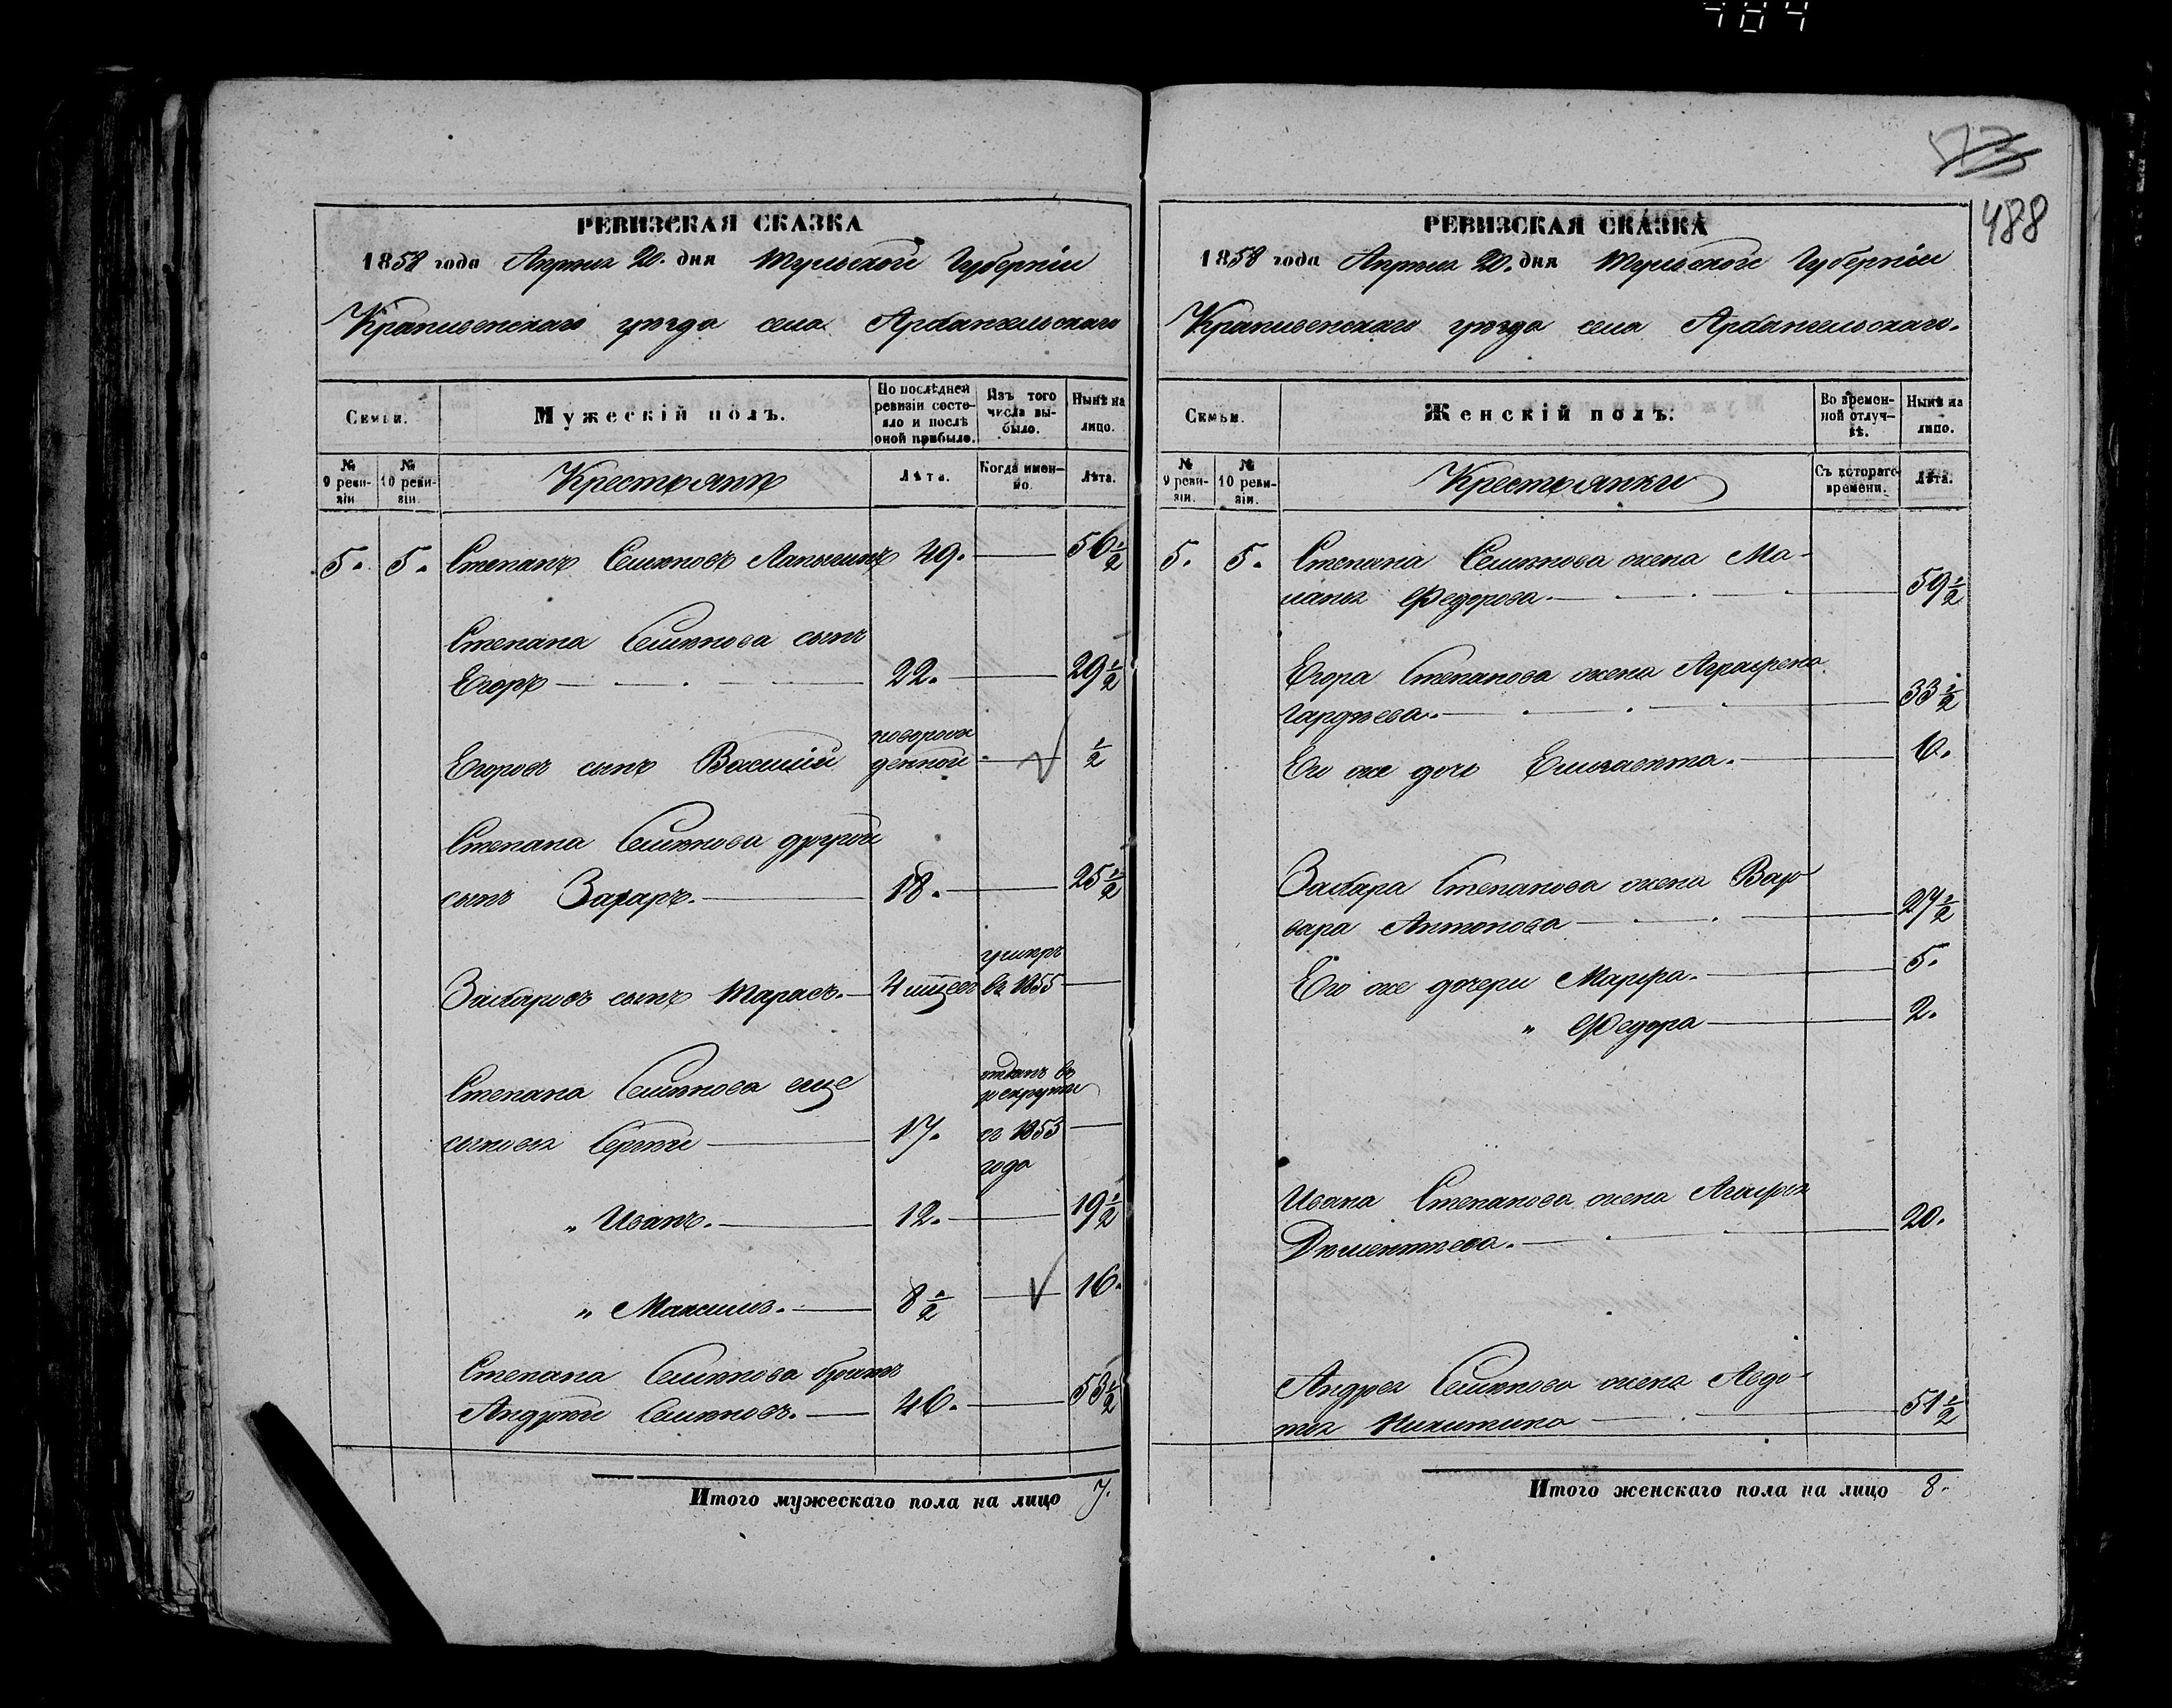 484
573
488
РЕВИЗСКАЯ СКАЗКА
1858 года Апреля 20. дня Тульской Губерніи
Крапивенскаго уѣзда села Архангельскаго
Семьи.
Мужескій полъ.
По послѣдней ревизіи состояло и послѣ оной прибыло.
Изъ того числа выбыло.
Нынѣ на лицо.
№ 9 ревизіи
№ 10 ревизіи.
Крестьянѣ
Лѣта.
Когда именно.
Лѣта.
5. 5. Степанъ Семѣновъ 49. 56½
Степана Семѣнова сынъ
Егоръ 22. 29½
Егоровъ сынъ Василій новорожденной ½
Степана Семѣнова другой
сынъ Захаръ. 18. 25½
Захаровъ сынъ Тарасъ. умеръ въ 1855
Степана Семѣнова еще
сыновья Сергѣй 17. отданъ въ рекруты въ 1853 года
„ Иванъ. 12. 19½
„ Максимъ. 8½ 16.
Степана Семѣнова братъ
Андрѣй Семѣновъ. 46. 53½
Итого мужескаго пола на лицо 7.
РЕВИЗСКАЯ СКАЗКА
1858 года Апрѣля 20. дня Тульской Губерніи
Крапивенскаго уѣзда села Архангельскаго.
Семьи.
Женскій полъ.
Во временной отлучкѣ.
Нынѣ на лицо.
№ 9 ревизіи.
№ 10 ревизіи.
Крестьянки
Съ котораго времени.
Лѣта.
5. 5. Степана Семѣнова жена Ма-
ланья Федорова. 59½
Егора Степанова жена Аграфена
Гардѣева. 33½
Его же дочь Елизавета. 6.
Захара Степанова жена Вар-
вара Антонова 27½
Его же дочери Марфа. 5.
„ Федора 2.
Ивана Степанова жена Агафья
Дѣментьева. 20.
Андрея Семѣнова жена Авдо-
тья Никитина 51½
Итого женскаго пола на лицо 8.